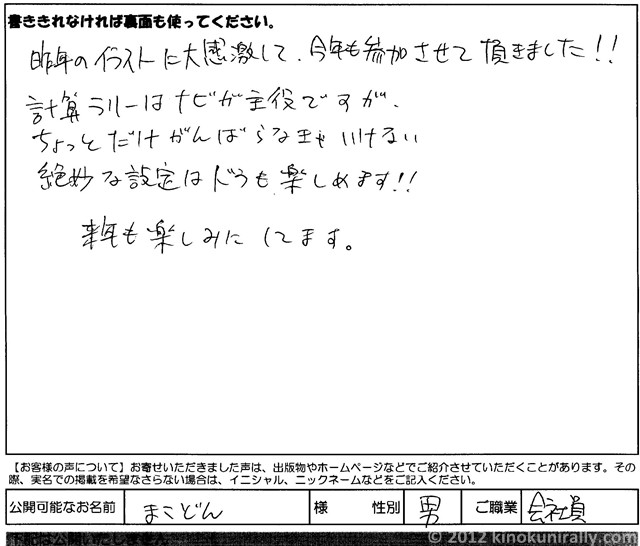 書ききれなければ裏面も使ってください。
昨年のイラストに大感激して、今年も参加させて頂きました!!
計算ラリーはナビが主役ですが、
ちょっとだけがんばらなきゃいけない
絶妙な設定はドラも楽しめます!!
来年も楽しみにしてます。
【お客様の声について】お寄せいただきました声は、出版物やホームページなどでご紹介させていただくことがあります。その
際、実名での掲載を希望なさらない場合は、イニシャル、ニックネームなどをご記入ください。
公開可能なお名前 まこどん 様 性別 男 ご職業 会社員
下記は公開いたしません
© 2012 kinokunirally.com